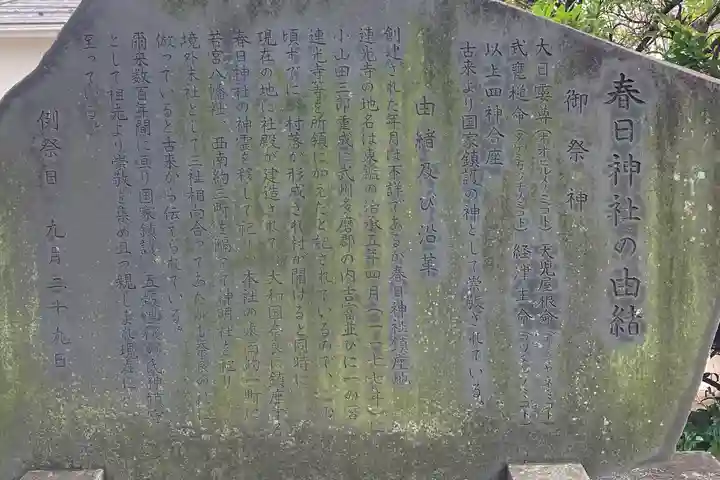 春日神社の由緒
御祭神
大日孁尊(オオヒルメノミコト)天児屋根命(アメノコヤネノミコト)
武甕槌命(タケミカヅチノミコト)経津主命(フツヌシノミコト)
以上四神合座
古来より国家鎮護の神として崇敬されている。
由緒及び沿革
創建された年月は不詳であるが春日神社鎮座地
蓮光寺の地名は東鑑の治承五年四月(一一七七年)に
小山田三郎重成に武州多磨郡の内吉富並びに一か宮
蓮光寺等を所領に加えたと記されているので、この
頃すでに、村落が形成され社が開けると同時に
現在の地に社殿が建造されて、大和国奈良に鎮座する
春日神社の神霊を移して祀り、本社の東南約一町に
若宮八幡社、西南約三町を隔てて神明社と祀り
境外末社として三社相向合ってあたかも奈良の
倣っていると古来から伝えられている。
爾来数百年間に亘り国家鎮護、五穀豊穣の氏神
として祖先より崇敬を集め且つ親しまれ現在に
至っている。
例祭日 九月二十九日